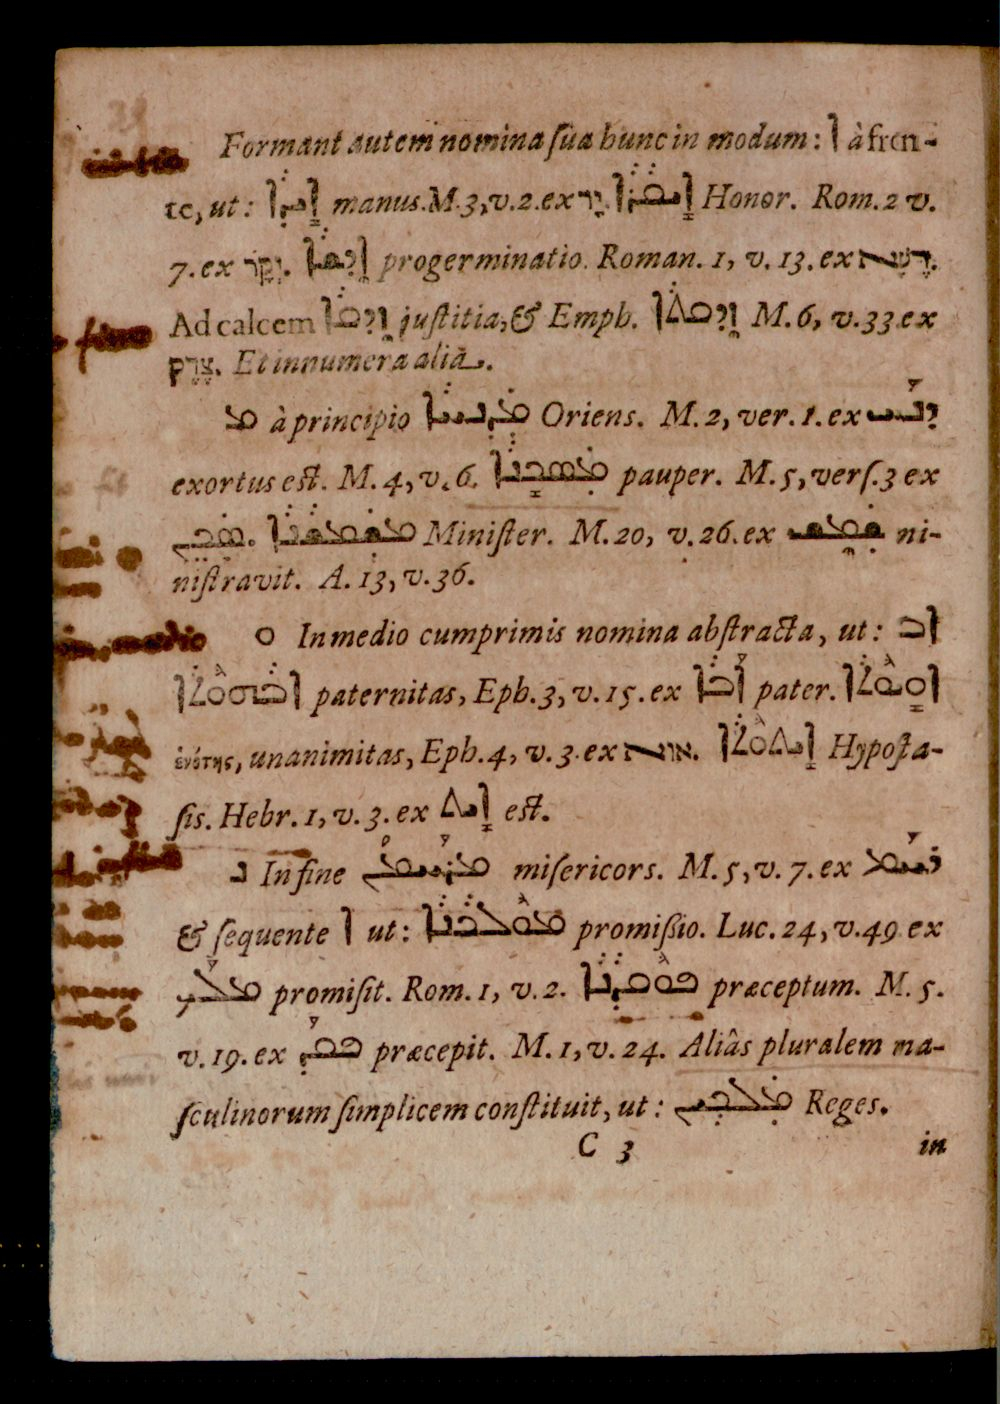 Formant autem nomina ſua hunc in modum: ܐ à fron-
te, ut: ܐܝܕܐ manus. M. 3, v. 2. ex יד. ܐܝܩܪܐ Honor. Rom. 2 v.
7. ex יקר. progerminatio. Roman. 1, v. 13. ex
Ad calcem justitia, & Emph. M. 6, v. 33. ex
צדק. Et innumera alia.
ܡ à principio ܡܕܢܚܐ Oriens. M. 2, ver. 1. ex ܕܢܚ
exortus eſt. M. 4, v. 6. ܡܣܟܢܐ pauper. M. 5, verſ. 3 ex
ܡܫܡܫܢܐ Miniſter. M. 20, v. 26. ex ܫܡܫ ni-
niſtravit. A. 13, v. 36.
ܘ In medio cumprimis nomina abſtracta, ut: ܐܒ
ܐܒܗܘܬܐ paternitas, Eph. 3, v. 15. ex ܐܒܐ pater. ܐܘܝܘܬܐ
ἑνότης, unanimitas, Eph. 4, v. 3. ex ܐܝܬܘܬܐ Hypoſta-
ſis. Hebr. 1, v. 3. ex ܐܝܬ eſt.
ܢ In fine ܡܪܚܡܢ miſericors. M. 5, v. 7. ex ܪܚܡ
& ſequente ܐ ut: ܡܘܠܟܢܐ promiſſio. Luc. 24, v. 49 ex
ܡܠܟ promiſit. Rom. 1, v. 2. ܦܘܩܕܢܐ præceptum. M. 5.
v. 19. ex ܦܩܕ præcepit. M. 1, v. 24. Aliâs pluralem ma-
ſculinorum ſimplicem conſtituit, ut: ܡܠܟܝܢ Reges.
C 3 in